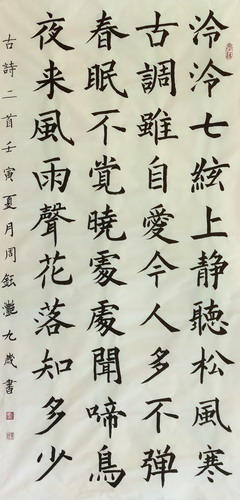 泠泠七絃上静聽松風寒
古調雖自愛今人多不弹
春眠不觉曉處處聞啼鳥
夜来風雨聲花落知多少
古詩二首壬寅夏月周鈺灩九歲書